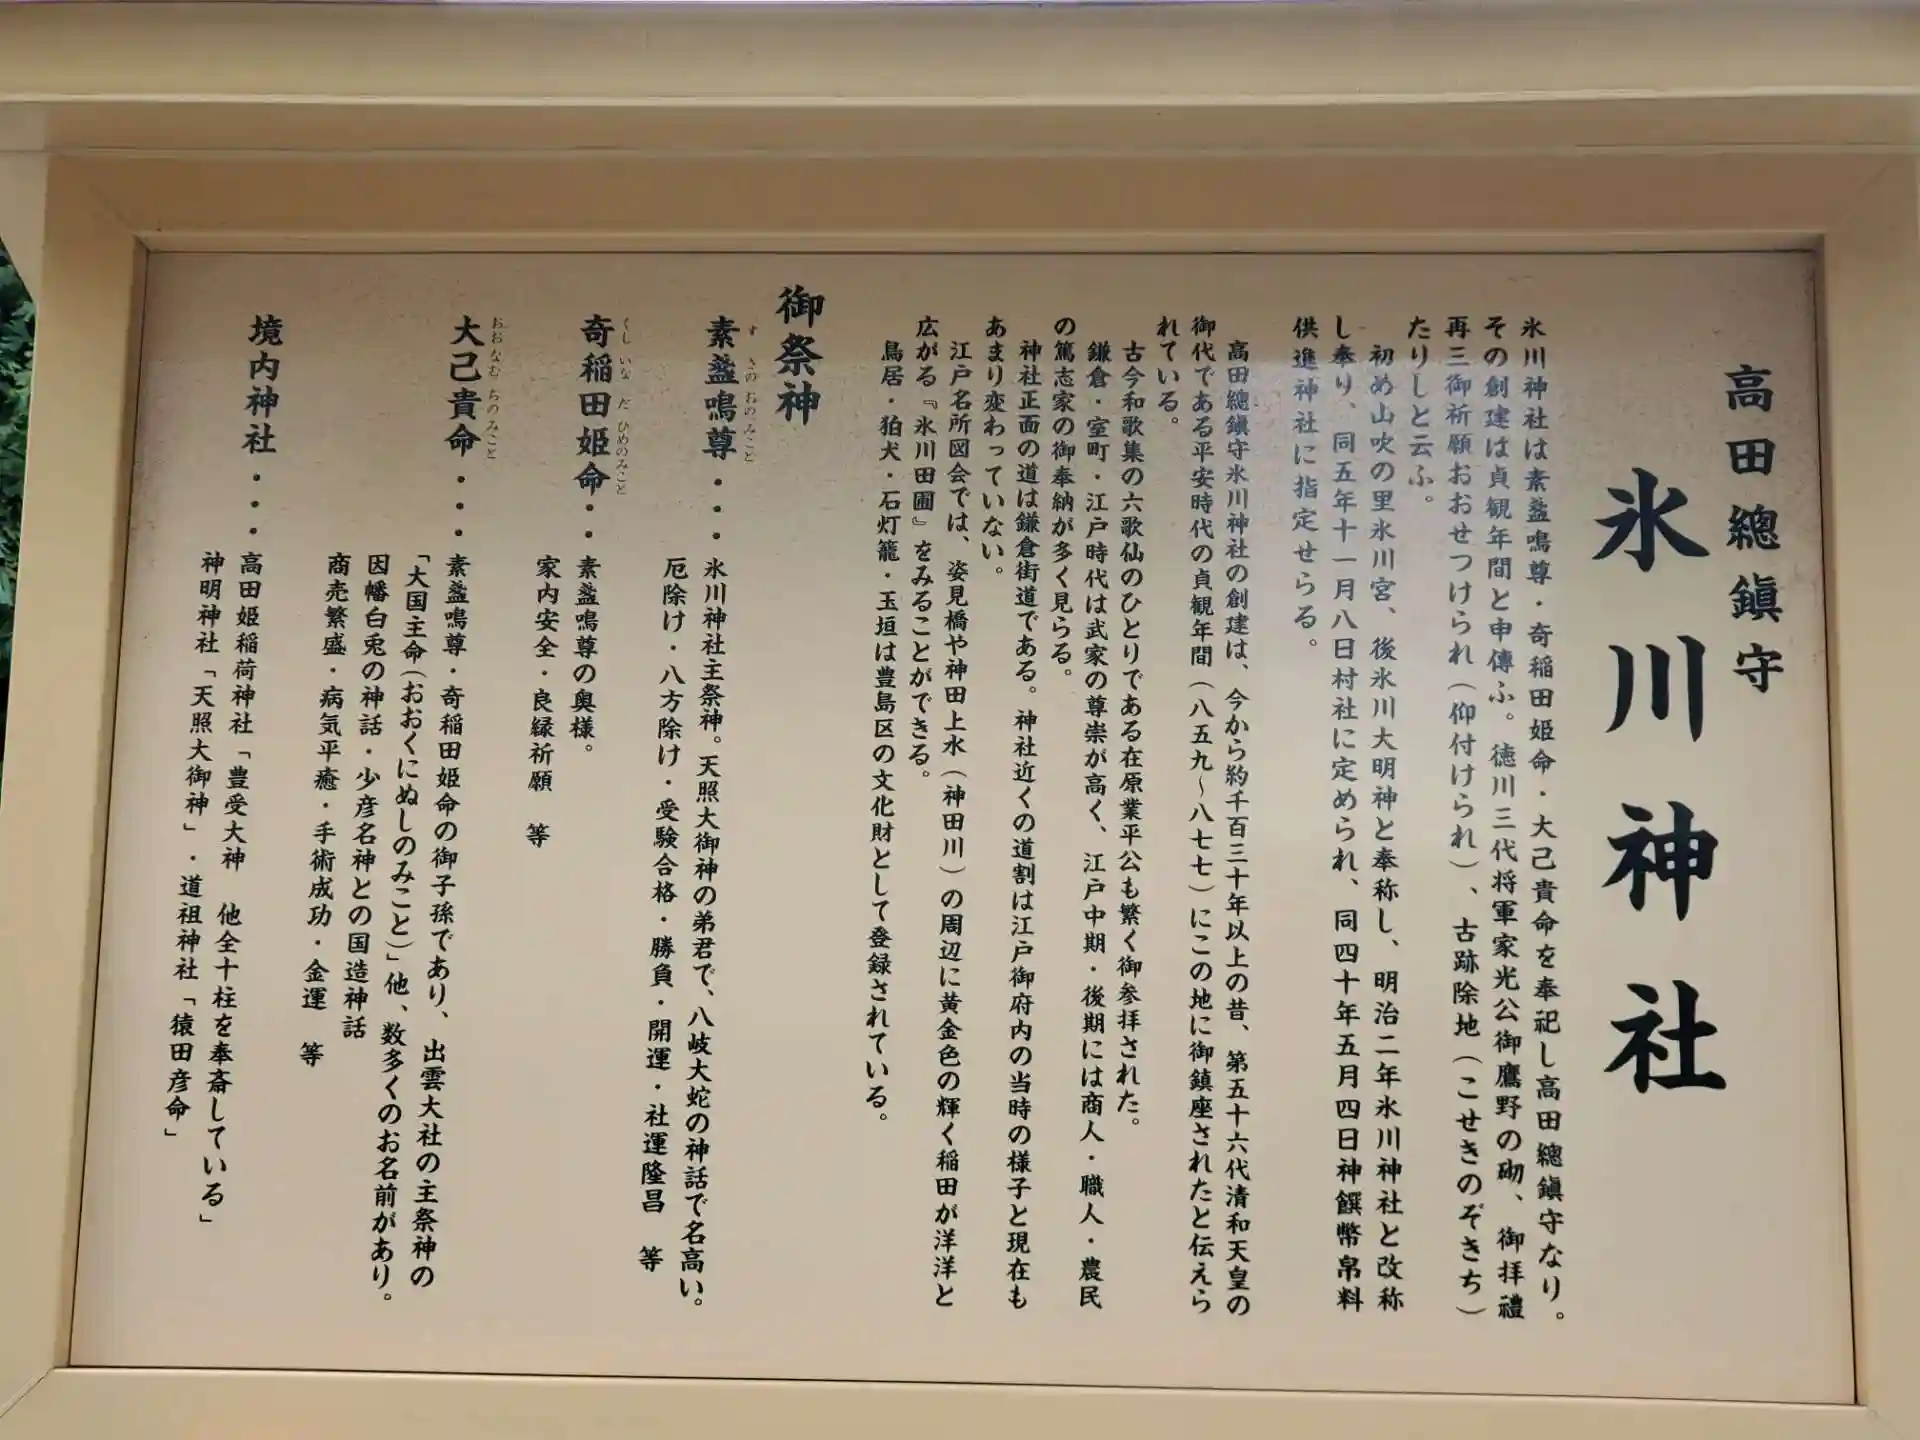 高田總鎭守
氷川神社
氷川神社は素盞鳴尊・奇稲田姫命・大己貴命を奉祀し高田總鎭守なり。
その創建は貞観年間と申傳ふ。徳川三代将軍家光公御鷹野の砌、御拝禮
再三御祈願おおせつけられ（仰付けられ）、古跡除地（こせきのぞきち）
たりしと云ふ。
初め山吹の里氷川宮、後氷川大明神と奉称し、明治二年氷川神社と改称
し奉り、同五年十一月八日村社に定められ、同四十年五月四日神饌幣帛料
供進神社に指定せらる。
高田總鎭守氷川神社の創建は、今から約千百三十年以上の昔、第五十六代清和天皇の
御代である平安時代の貞観年間（八五九～八七七）にこの地に御鎮座されたと伝えら
れている。
古今和歌集の六歌仙のひとりである在原業平公も繁く御参拝された。
鎌倉・室町・江戸時代は武家の尊崇が高く、江戸中期・後期には商人・職人・農民
の篤志家の御奉納が多く見らる。
神社正面の道は鎌倉街道である。神社近くの道割は江戸御府内の当時の様子と現在も
あまり変わっていない。
江戸名所図会では、姿見橋や神田上水（神田川）の周辺に黄金色の輝く稲田が洋洋と
広がる『氷川田圃』をみることができる。
鳥居・狛犬・石灯籠・玉垣は豊島区の文化財として登録されている。
御祭神
す さのおのみこと
素盞鳴尊・・・氷川神社主祭神。天照大御神の弟君で、八岐大蛇の神話で名高い。
厄除け・八方除け・受験合格・勝負・開運・社運隆昌 等
くし いな だ ひめのみこと
奇稲田姫命・・素盞鳴尊の奥様。
家内安全・良縁祈願 等
おおなむ ちのみこと
大己貴命・・・素盞鳴尊・奇稲田姫命の御子孫であり、出雲大社の主祭神の
「大国主命（おおくにぬしのみこと）」他、数多くのお名前があり。
因幡白兎の神話・少彦名神との国造神話
商売繁盛・病気平癒・手術成功・金運 等
境内神社・・・高田姫稲荷神社「豊受大神 他全十柱を奉斎している」
神明神社「天照大御神」・道祖神社「猿田彦命」